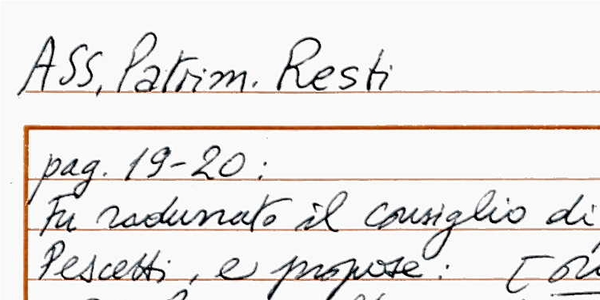 ASS, Patrim. Resti
pag. 19-20:
Fu radunato il consiglio di
Pescetti, e propose: [